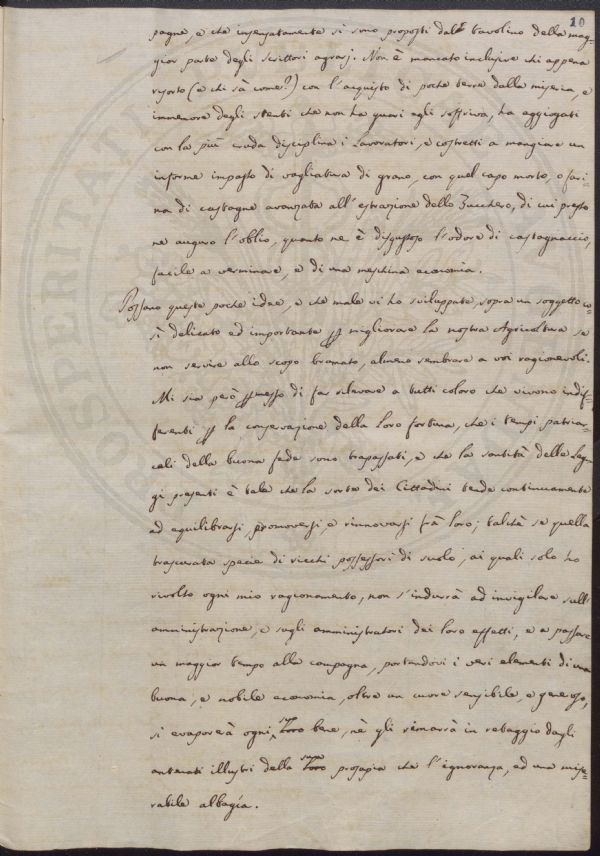 10
pagne, e che insensatamente si sono proposti dal tavolino della mag-
gior parte degli scrittori agrarj. Non è mancato inclusive chi appena
risorto (e chi sà come?) con l'acquisto di poche terre dalla miseria, e
immemore degli stenti che non ha guari egli soffriva, ha aggiogati
con la più cruda disciplina i Lavoratori, e costretti a mangiare un
informe impasto di vagliatura di grano, con quel capo morto, o fari
na di castagne avanzata all'estrazione dello Zucchero, di cui presto
ne auguro l'oblio, quanto ne è disgustoso l'odore di castagnaccio,
facile a verminare, e di una meschina economia.
Possano queste poche idee, e che male vi ho sviluppate, sopra un soggetto co-
sì delicato ed importante p migliorare la nostra Agricoltura se
non servire allo scopo bramato, almeno sembrare a voi ragionevoli.
Mi sia però pmesso di far rilevare a tutti coloro che vivono indif-
ferenti p la conservazione della loro fortuna, che i tempi patriar-
cali della buona fede sono trapassati, e che la santità delle Leg-
gi presenti è tale che la sorte dei Cittadini tende continuamente
ad equilibrarsi, promoversi, e rinnovarsi frà loro; talchè se quella
trascurata specie di ricchi possessori di suolo, ai quali solo ho
rivolto ogni mio ragionamento, non s'indurrà ad invigilare sull'
amministrazione, e sugli amministratori dei loro effetti, e a passare
un maggior tempo alla campagna, portandovi i veri elementi di una
buona, e nobile economia, oltre un cuore sensibile, e generoso,
si evaporerà ogni suo bene, nè gli rimarrà in retaggio dagli
antenati illustri della sua prosapia che l'ignoranza, ed una mise-
rabile albagía.
PROSPERITATI